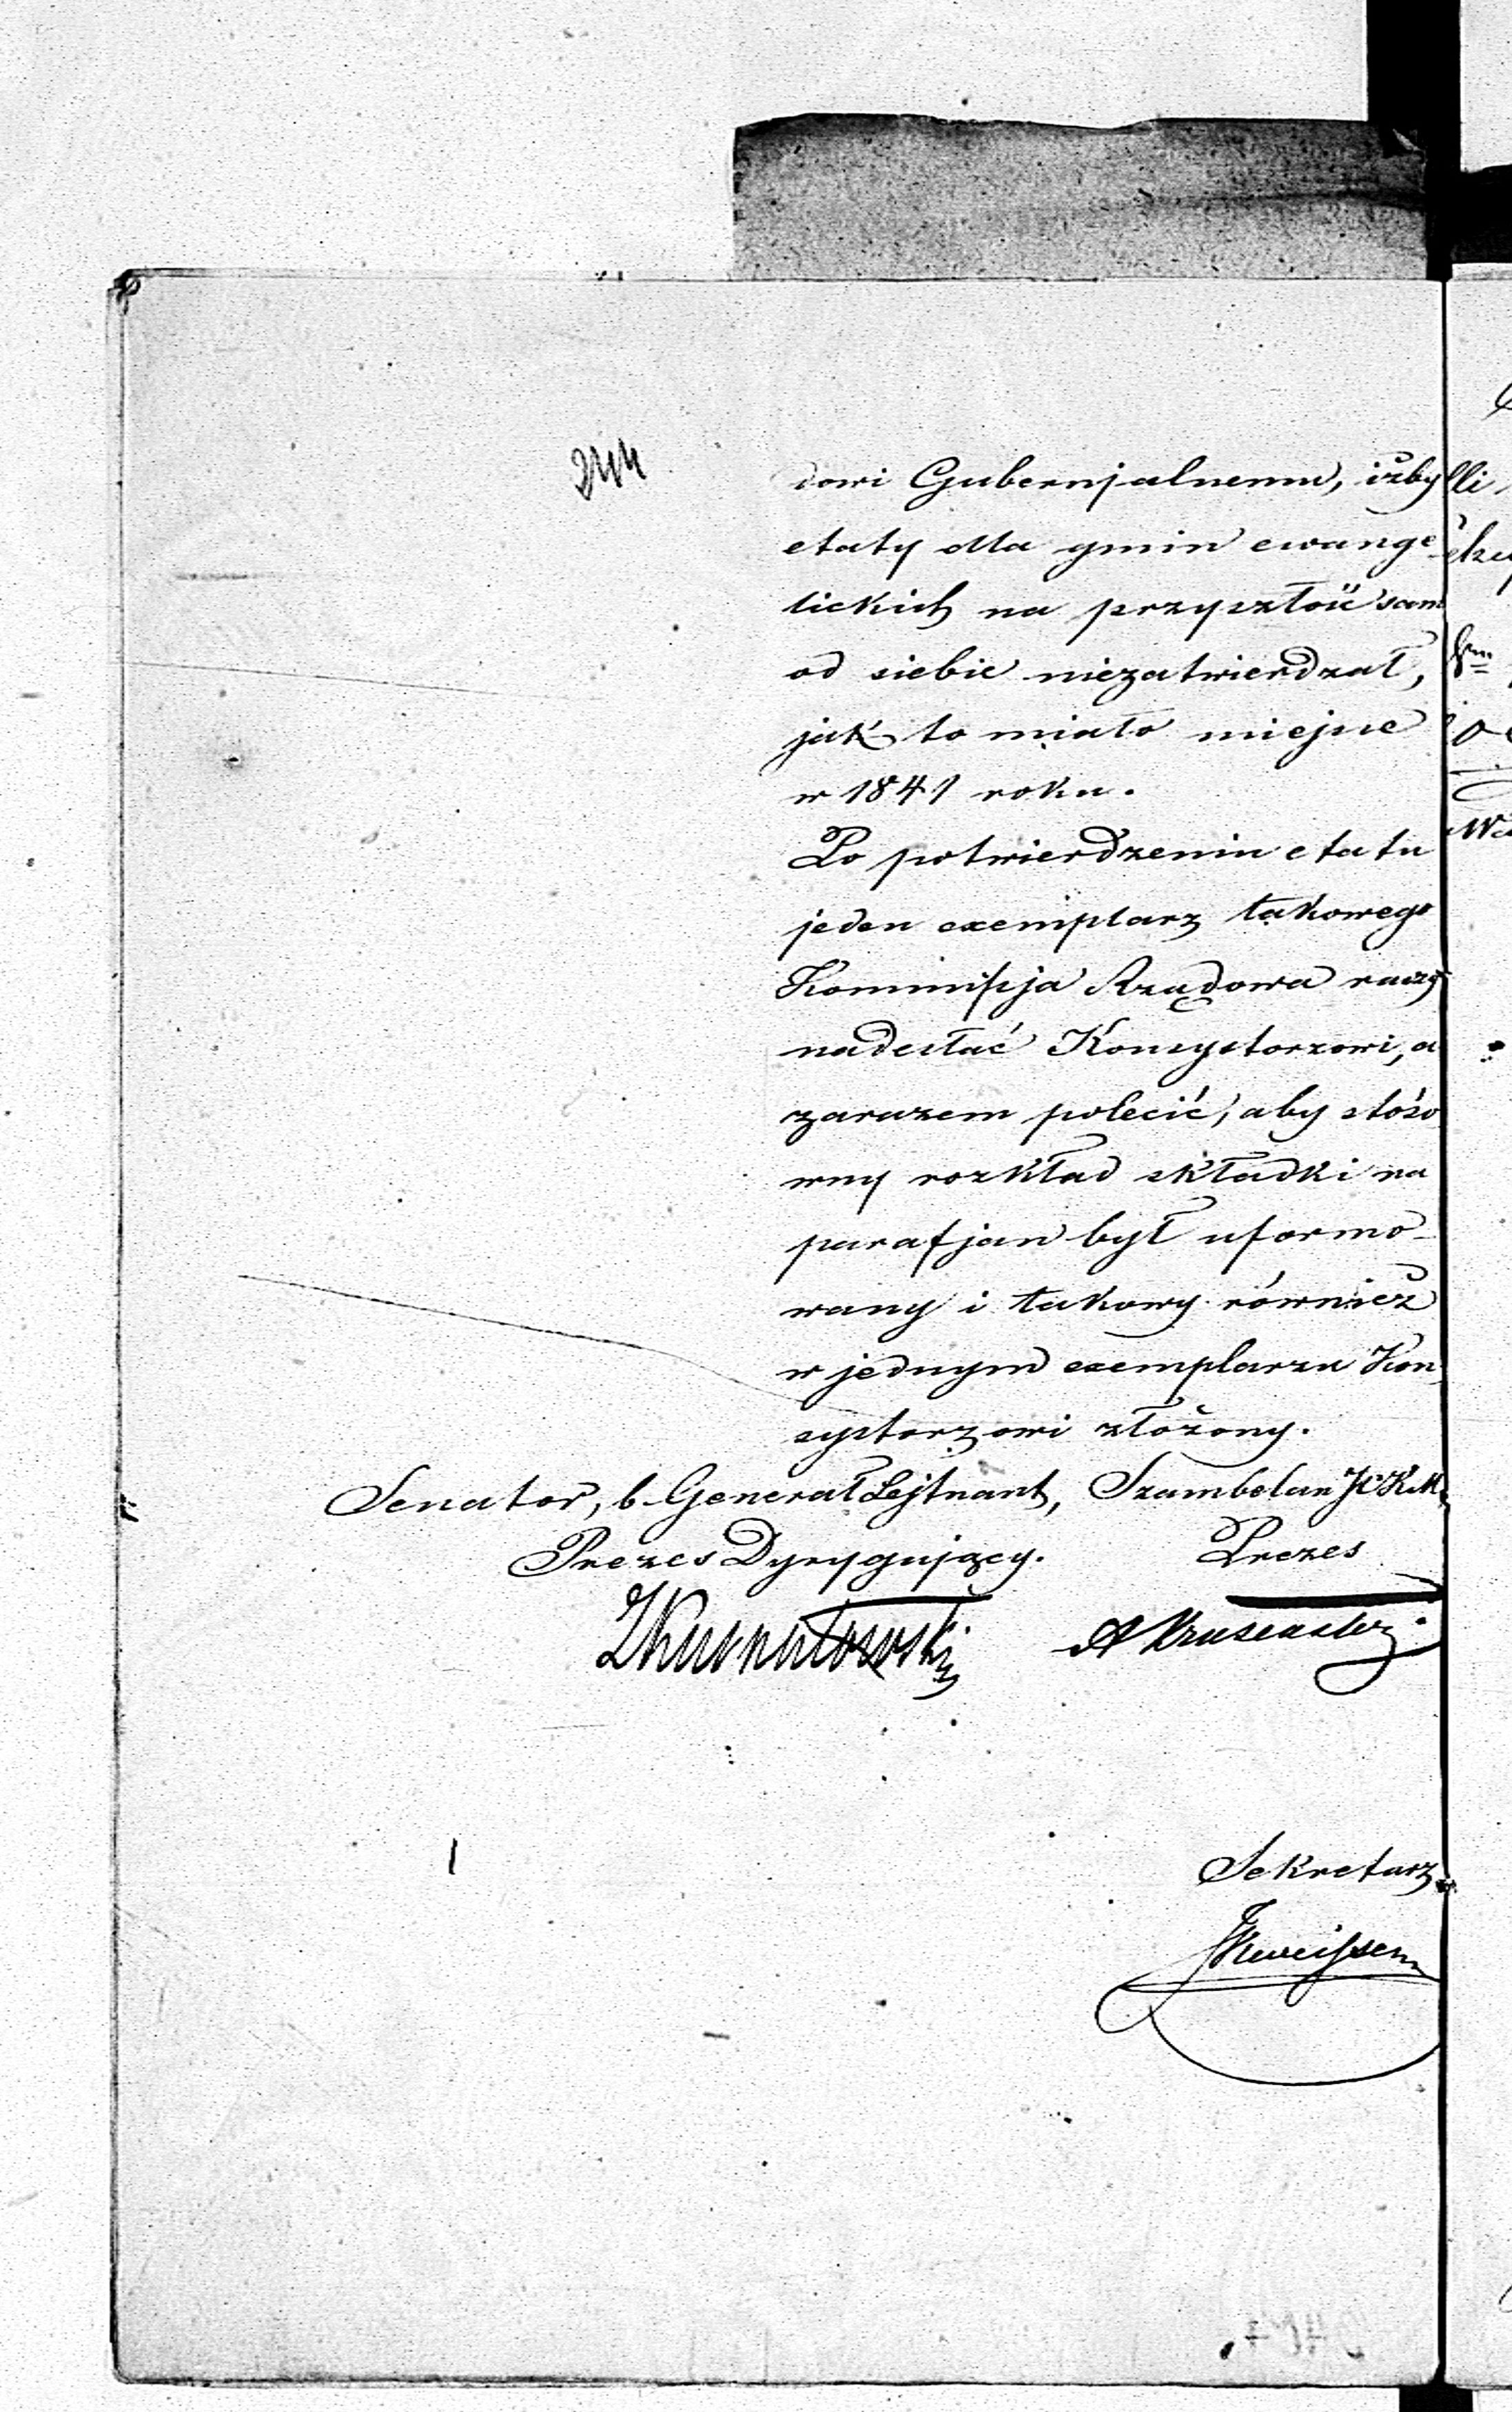 244
dowi Gubernjalnemu, iżby
etaty dla gmin ewange-
lickich na przyszłość sam
od siebie niezatwierdzał,
jak to miało miejsce
w 1841 roku.
Po potwierdzeniu etatu
jeden exemplarz takowego
Kommissja Rządowa raczy
nadesłać Konsystorzowi, a
zarazem polecić, aby stóso
wny rozkład składki na
parafjan był uformo-
wany i takowy również
w jednym exemplarzu Kon
systorzowi złożony.
Senator, b. Generał Lejtnant, Szambelan J.C.K.M.
Prezes Dyrygujący. Prezes
Sekretarz